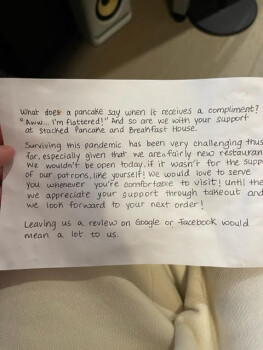 What does a pancake say when it receives a compliment?
"Aww... I'm flattered!" And so are we with your support
at Stacked Pancake and Breakfast House.
Surviving this pandemic has been very challenging thus
far, especially given that we are a fairly new restaurant
We wouldn't be open today, if it wasn't for the supp
of our patrons, like yourself! We would love to serve
you whenever you're comfortable to visit! Until the
we appreciate your support through takeout and
we look forward to your next order!
Leaving us a review on Google or Facebook would
mean a lot to us.